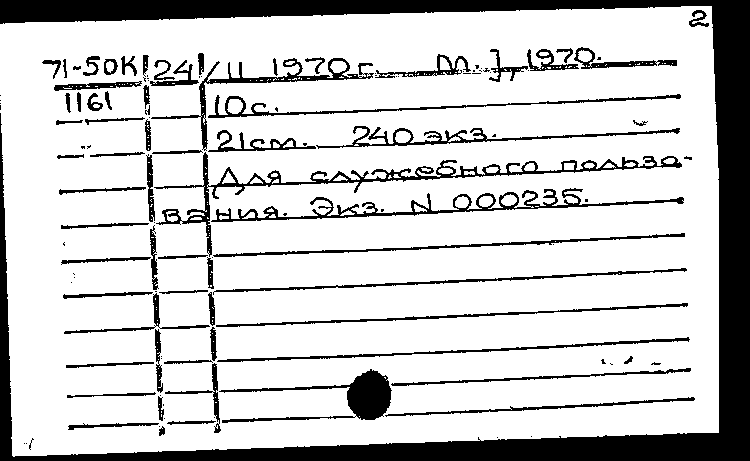 2
71-50К 24/II 1970 г. М.], 1970.
1161 10 с.
21 см. 240 экз.
Для служебного пользо-
вания. Экз. N 000235.